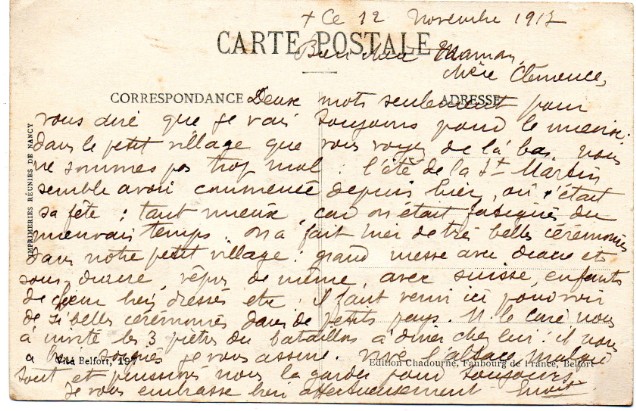 + Ce 12 Novembre 1917
CARTE POSTALE
Bien chère Maman,
chère Clémence,
CORRESPONDANCE ADRESSE
Deux mots seulement pour
vous dire que je vais toujours pour le mieux:
dans le petit village que vous voyez de là bas, nous
ne sommes pas trop mal : l'été de la St Martin
semble avoir commencé depuis hier, où c'était
sa fête : tant mieux, car on était fatigués du
mauvais temps. on a fait hier de très belles cérémonies
dans notre petit village : grand messe avec diacre et
sous diacre, vêpres de même, avec suisse, enfants
de chœur bien dressés etc : il faut venir ici pour voir
de si belles cérémonies dans de petits pays. M. le curé nous
a invité les 3 prêtres du bataillon à dîner chez lui : il nous
a bien soignés je vous assure. Vive l'alsace malgré
tout et puissions nous la garder pour toujours
Je vous embrasse bien affectueusement
IMPRIMERIES RÉUNIES DE NANCY
Visé Belfort, 197
Edition Chadourne, Faubourg de France, Belfort